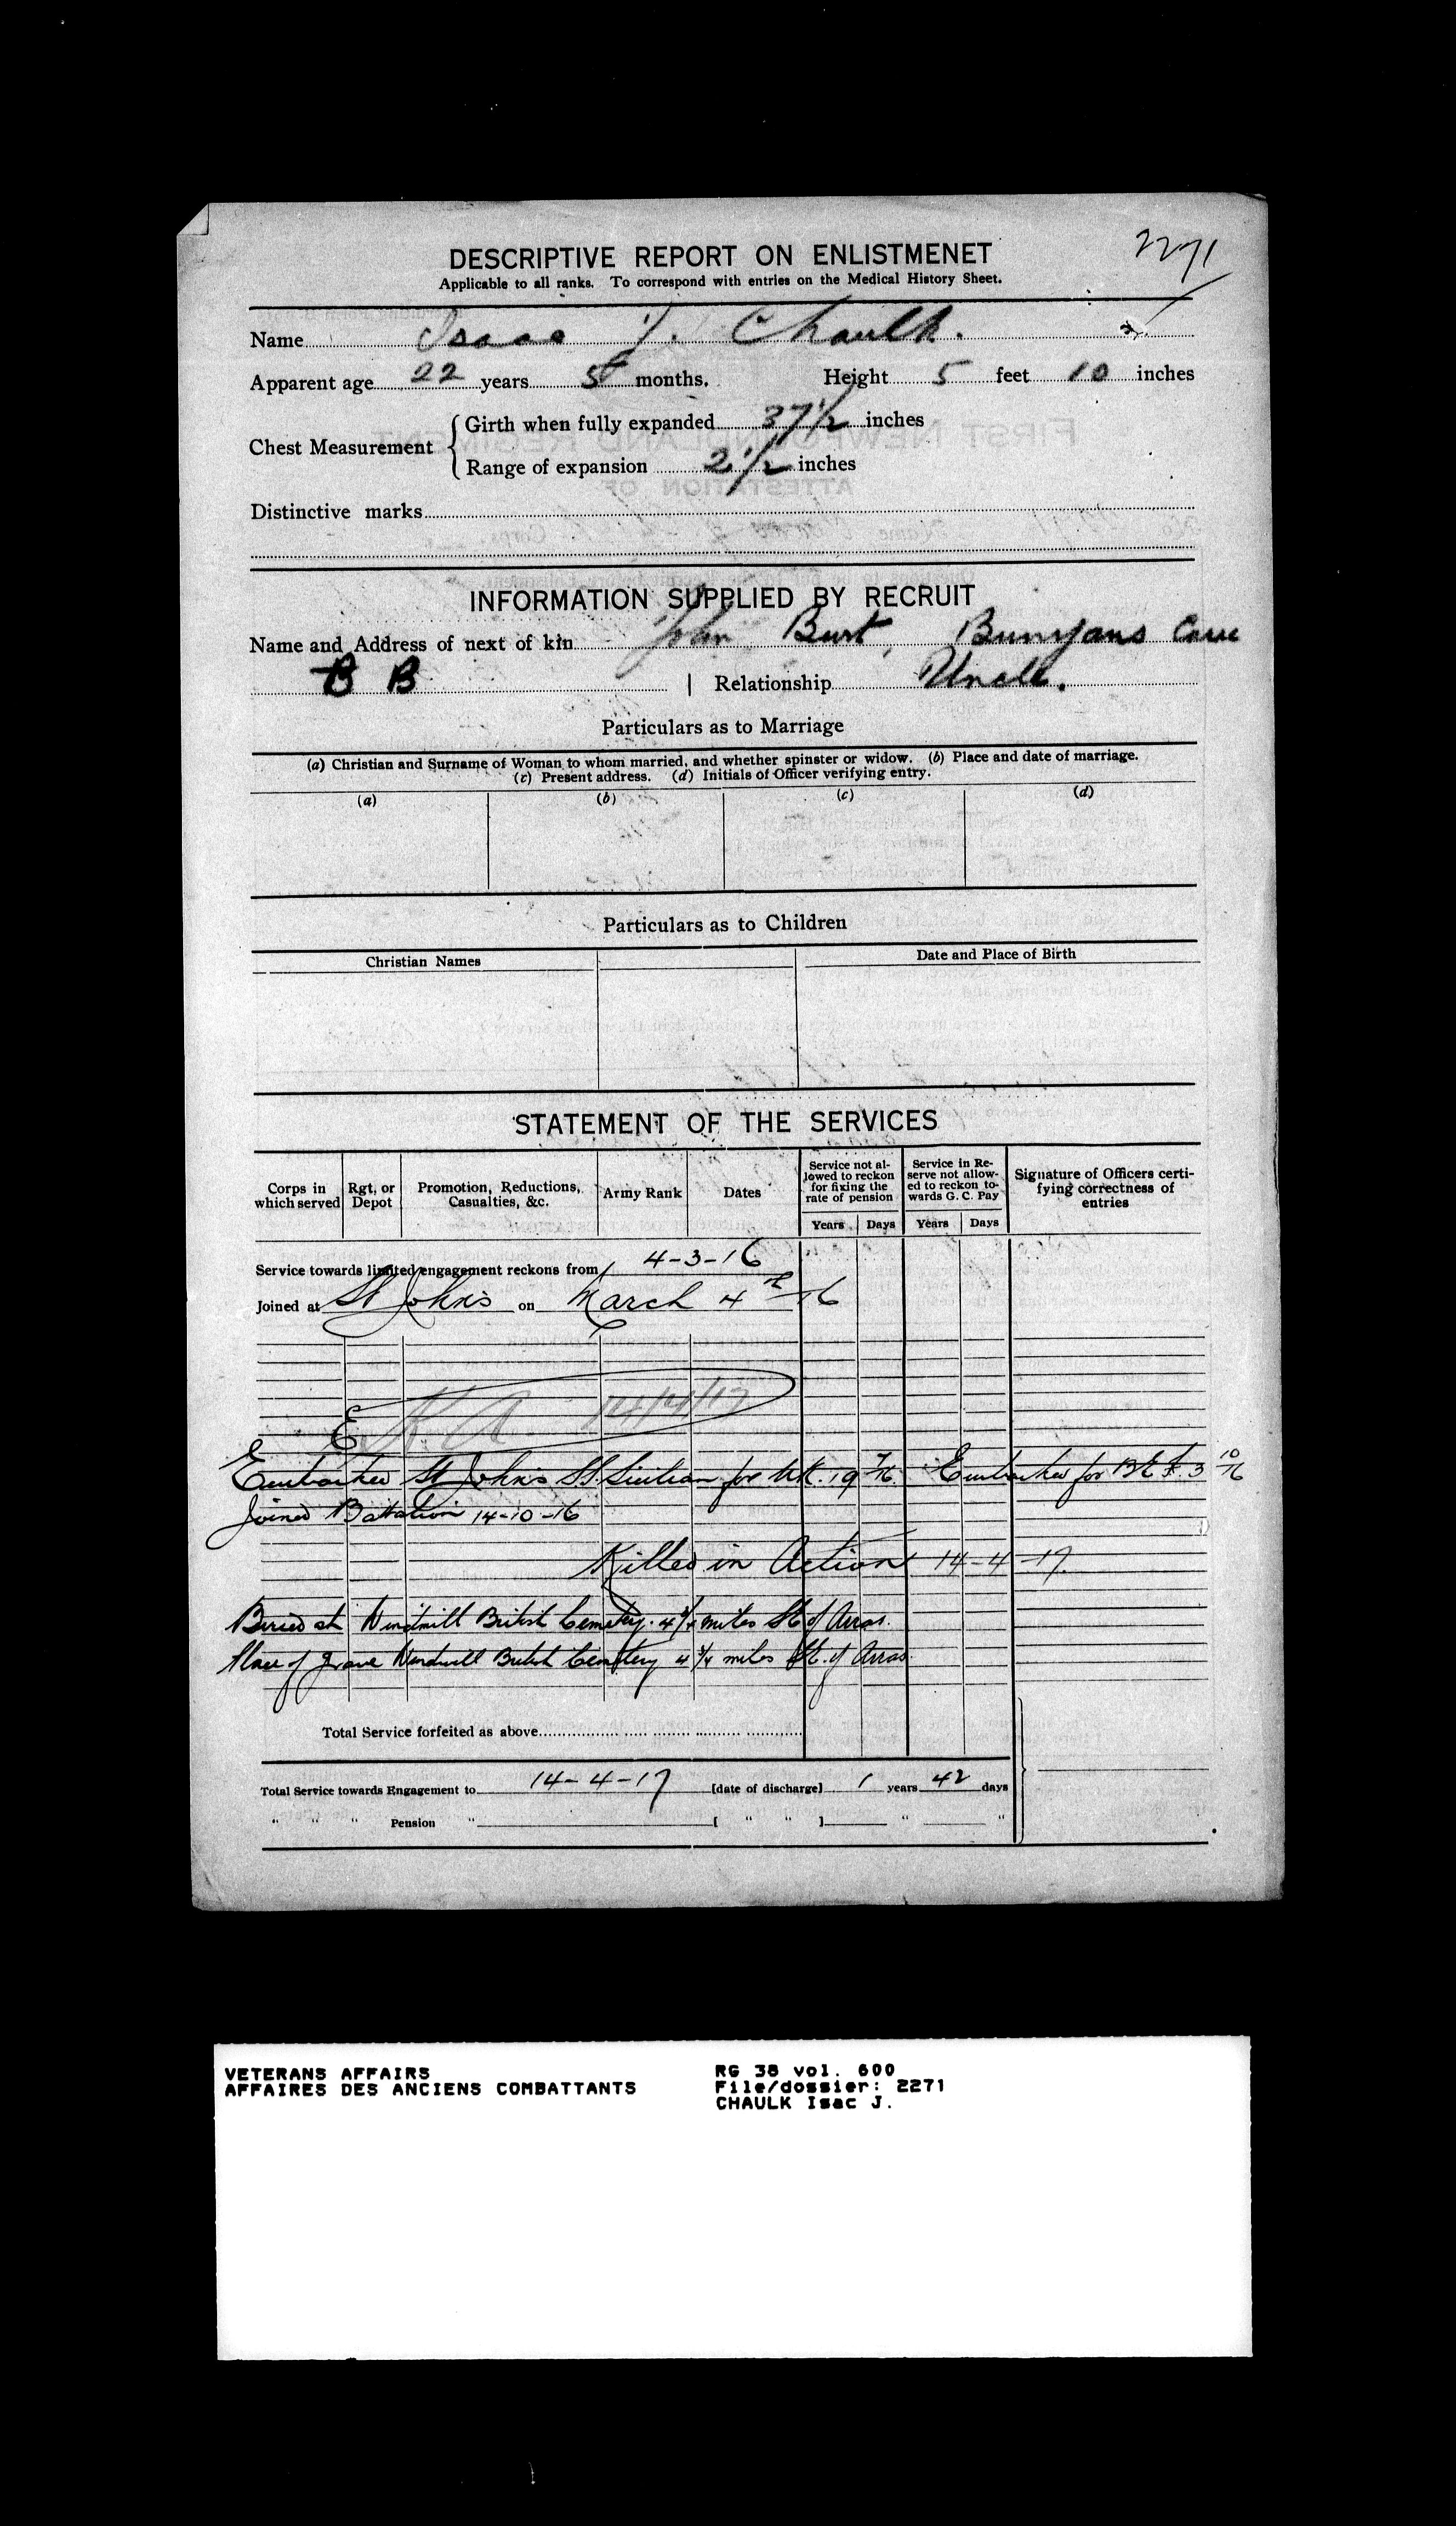 2271
DESCRIPTIVE REPORT ON ENLISTMENET
Applicable to all ranks. To correspond with entries on the Medical History Sheet.
Name Isaac J. Chaulk.
Apparent age 22 years 5 months. Height 5 feet 10 inches
Chest Measurement { Girth when fully expanded 37 1/2 inches
Range of expansion 2 1/2 inches
Distinctive marks
INFORMATION SUPPLIED BY RECRUIT
Name and Address of next of kin John Burt, Bunyans Cove
B B | Relationship Uncle.
Particulars as to Marriage
(a) Christian and Surname of Woman to whom married, and whether spinster or widow. (b) Place and date of marriage.
(c) Present address. (d) Initials of Officer verifying entry.
(a) (b) (c) (d)
Particulars as to Children
Christian Names Date and Place of Birth
STATEMENT OF THE SERVICES
Corps in which served Rgt, or Depot Promotion, Reductions, Casualties, &c. Army Rank Dates Service not allowed to reckon for fixing the rate of pension Service in Reserve not allowed to reckon towards G. C. Pay Signature of Officers certifying correctness of entries
Years Days Years Days
Service towards limited engagement reckons from 4-3-16
Joined at St John's on March 4th 16
K A 14/4/17
Embarked St John's SS. Sicilian for UK. 19 7/16. Embarked for B E F. 3 10/16
Joined Battalion 14-10-16
Killed in Action 14-4-17.
Buried at Windmill British Cemetery. 4 3/4 miles SE of Arras.
Place of grave Windmill British Cemetery 4 3/4 miles SE. of Arras.
Total Service forfeited as above
Total Service towards Engagement to 14-4-17 [date of discharge] 1 years 42 days
" " " Pension " [ " " ] " "
VETERANS AFFAIRS RG 38 vol. 600
AFFAIRES DES ANCIENS COMBATTANTS File/dossier: 2271
CHAULK Isac J.